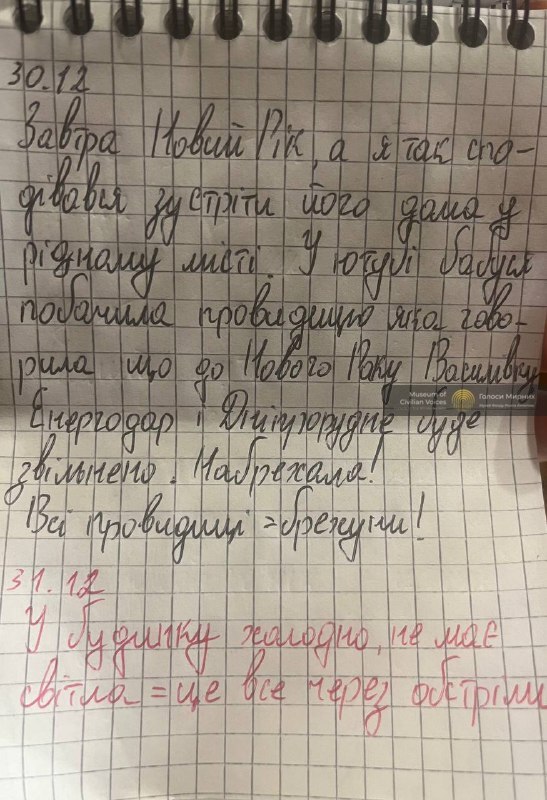 30.12
Завтра Новий Рік, а я так спо-
дівався зустріти його дома у
рідному місті. У ютубі бабуся
побачила провидицю яка гово-
рила що до Нового Року Василівку
Museum of Civilian Voices
Голоси Мирних
Енергодар і Дніпрорудне буде
звільнено. Набрехала!
Всі провидиці = брехуни!
31.12
У будинку холодно, не має
світла = це все через обстріли